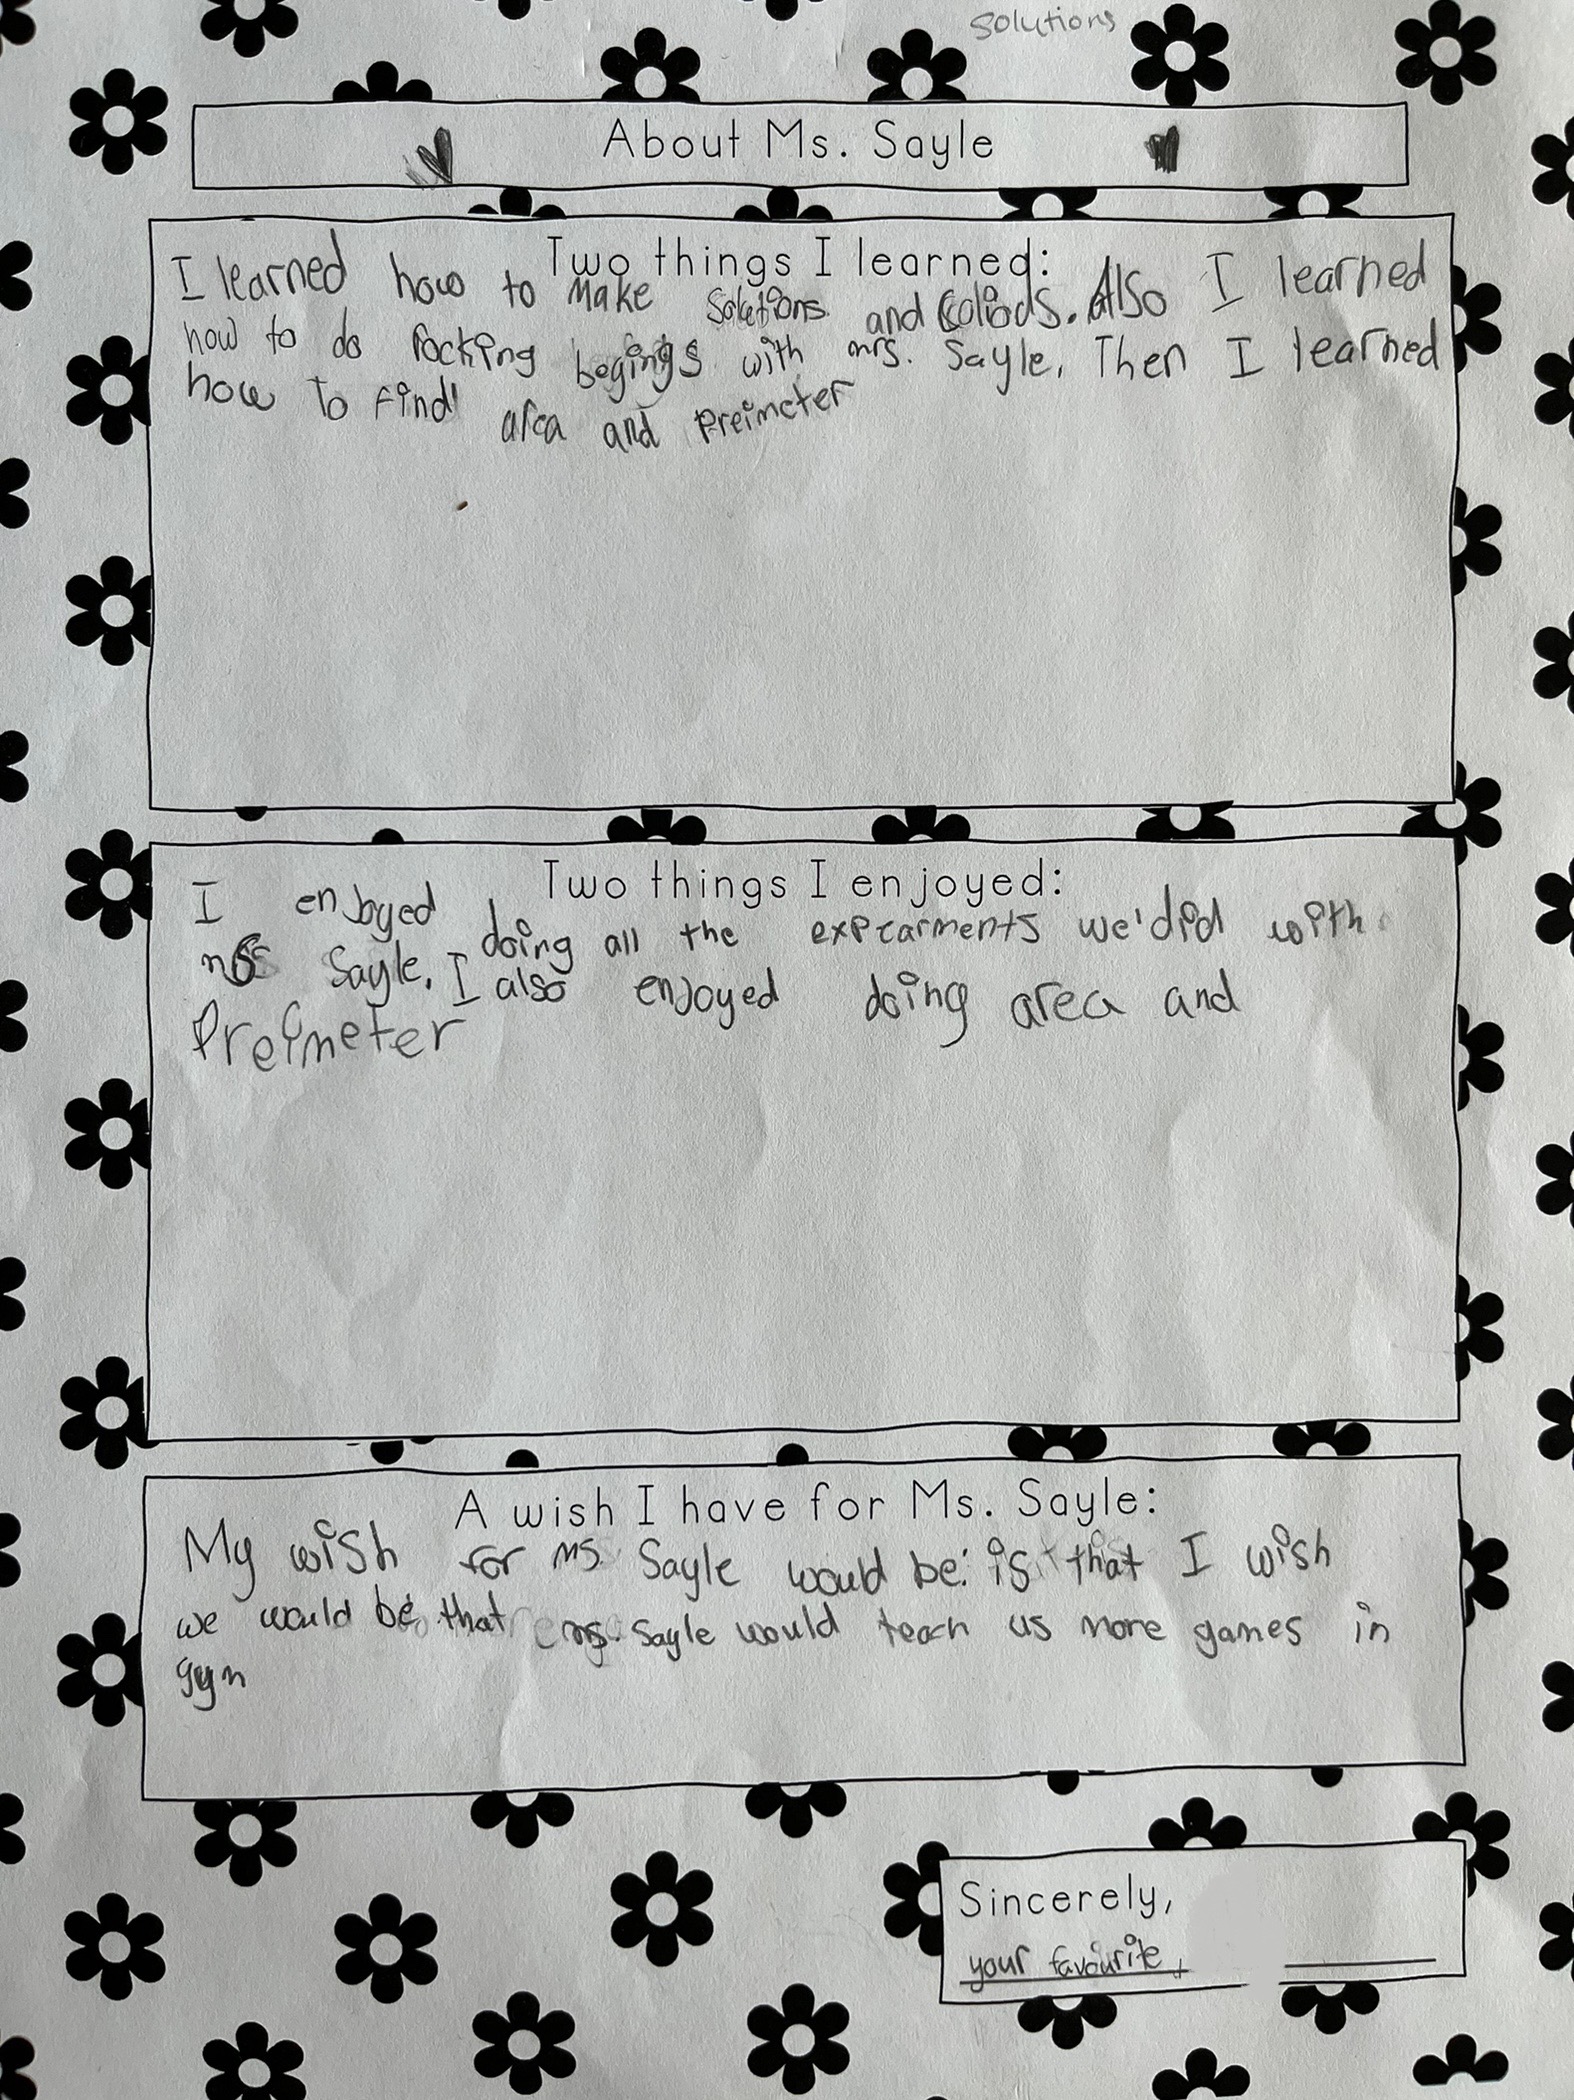 solutions
About Ms. Sayle
Two things I learned:
I learned how to make solutions and coliods. Also I learned
how to do rocking begings with mrs. Sayle. Then I learned
how to find area and Preimeter
Two things I enjoyed:
I enjoyed doing all the expearments we did with
Sayle. I also enjoyed doing area and
Preimeter
A wish I have for Ms. Sayle:
My wish for ms Sayle would be: is that I wish
we would be that ms. Sayle would teach us more games in
gym
Sincerely,
your favourite